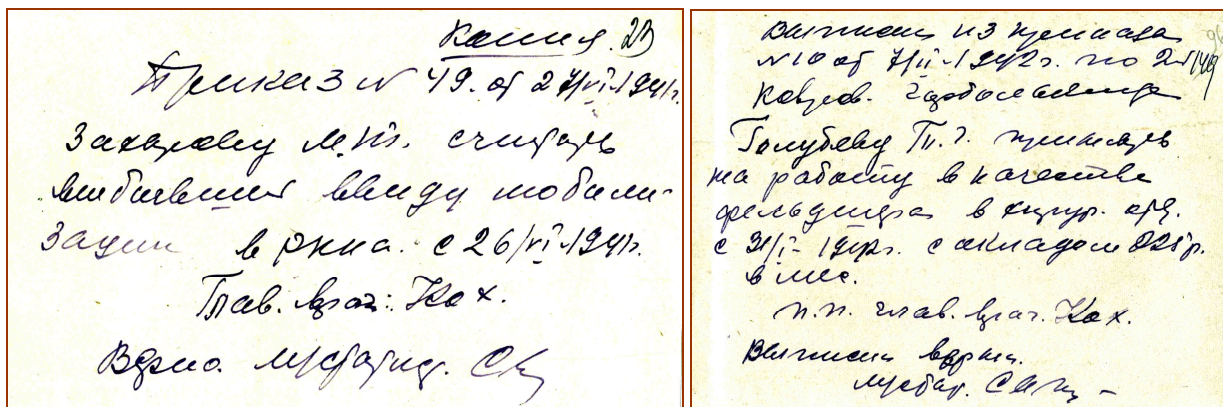 Копия. 23
Приказ № 49. от 27/VI-1941г.
Захарову М.П. считать
выбывшей ввиду мобили-
зации в РККА. с 26/VI-1941г.
Глав. врач: Кох.
Верно.
Выписка из приказа
№ 10 от 7/II-1942г. по
Ковров. горбольнице
Голубеву П.Г. принять
на работу в качестве
фельдшера в хирур. отд.
с 31/I-1942г. с окладом р.
в мес.
п.п. глав. врач. Кох.
Выписка верна.